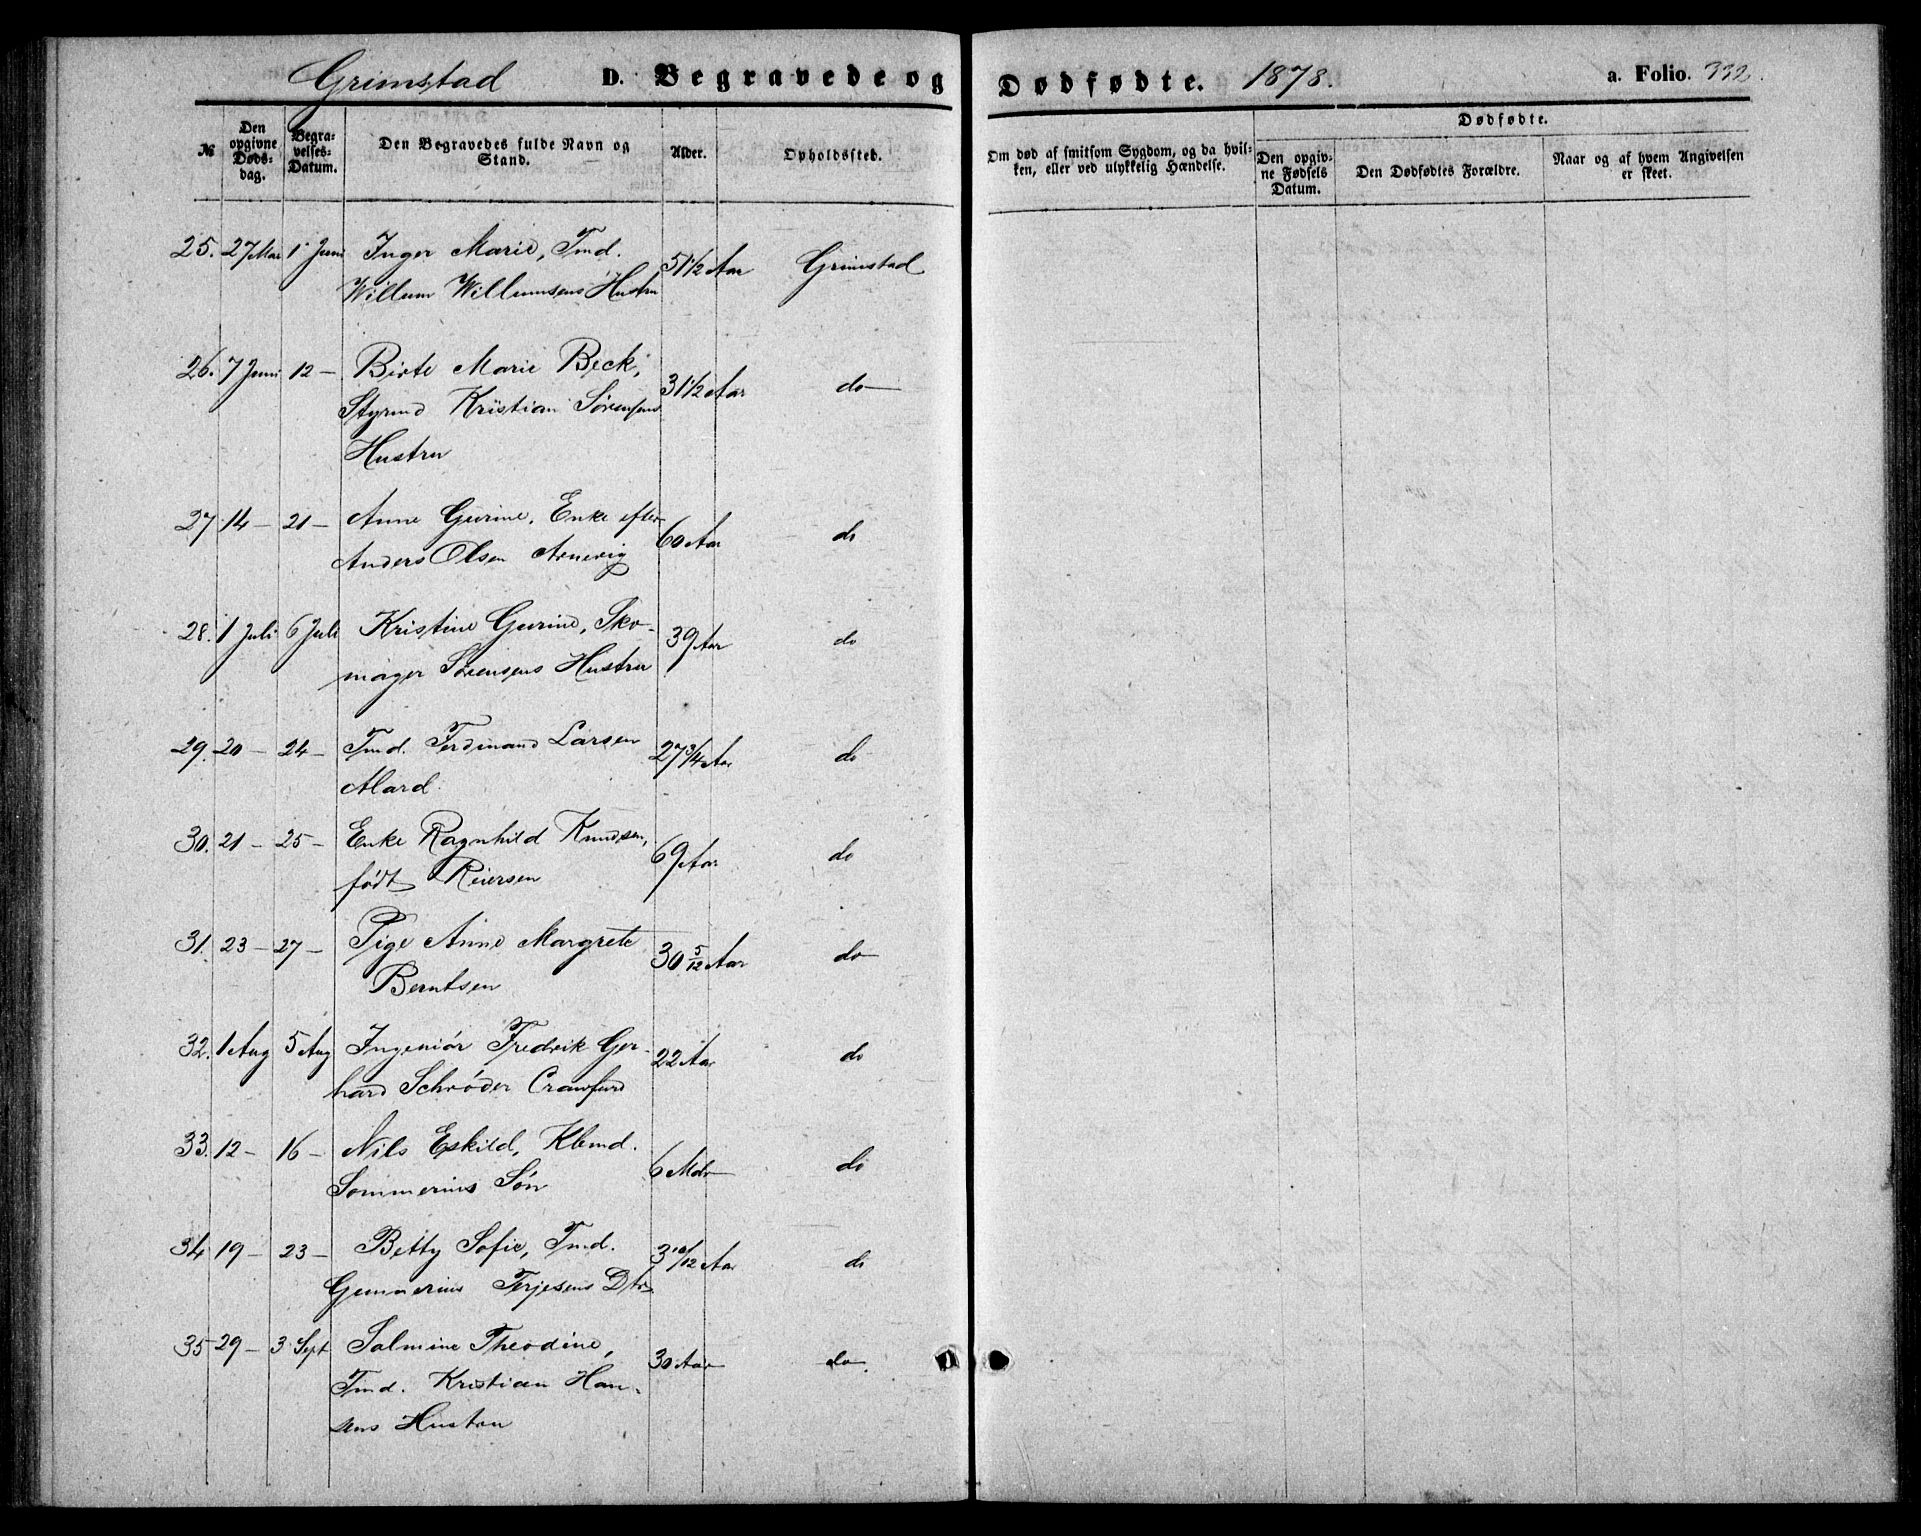 Grimstad D. Begravede og Dødfødte. 1878. a. Folio. 332.
№ Den opgivne Døds-dag. Begra-velses-Datum. Den Begravedes fulde Navn og Stand. Alder. Opholdssted. Om død af smitsom Sygdom, og da hvil-ken, eller ved ulykkelig Hændelse. Dødfødte. Den opgiv-ne Fødsels Datum. Den Dødfødtes Forældre. Naar og af hvem Angivelsen er skeet.
25. 27 Mai 1 Juni Inger Marie, Tmd.
Willum Willumsens Hustru 51 1/2 Aar Grimstad
26. 7 Juni 12 – Birte Marie Beck,
Styrmd Kristian Sørensens 31 1/2 Aar do
Hustru
27 14 – 21 – Anne Gurine, Enke efter
Anders Olsen Arnevig 60 Aar do
28. 1 Juli 6 Juli Kristine Gurine, Sko-
mager Sørensens Hustru 39 Aar do
29. 20 – 24 – Tmd. Ferdinand Larsen 27 3/4 Aar do
Alard.
30. 21 – 25 – Enke Ragnhild Knudsen,
født Reiersen 69 Aar do
31. 23 – 27 – Pige Anne Margrete
Berntsen 30 5/12 Aar do
32. 1 Aug 5 Aug Ingeniør Fredrik Ger-
hard Schrøder Crawfurd 22 Aar do
33. 12 – 16 – Nils Eskild, Kbmd.
Sommerius Søn 6 Mdr do
34 19 – 23 – Betty Sofie, Tmd.
Gunnerius Terjesens Dtr. 3 10/12 Aar do
35 29 – 3 Sept Salmine Theodine,
Tmd. Kristian Han- 30 Aar do.
sens Hustru